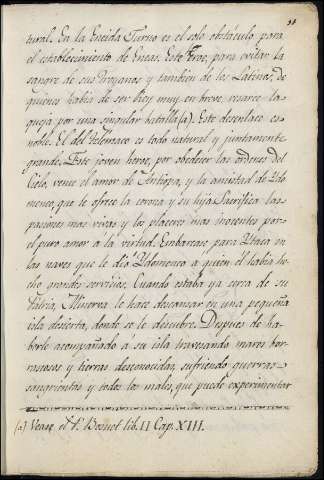 34
tural. En la Eneida Turno es el solo obstaculo para
el establecimiento de Eneas. Este Eroe, para evitar la
sangre de sus troyanos y tambien de los Latinos, de
quienes habia de ser Rey muy en breve, renace la
queja por una singular batalla (a). Este desenlace es
noble. El del Telemaco es todo natural y juntamente
grande. Este joven heroe, por obedecer las ordenes del
Cielo, vence el amor de Antiopa, y la amistad de Ydo
meneo, que le ofrece la corona y su hija. Sacrifica las
pasiones mas vivas y los placeres mas inocentes por
el puro amor a la virtud. Embarcase para Ytaca en
las naves que le dió Ydomeneo a quien él habia he
cho grandes servicios. Cuando estaba ya cerca de su
Patria, Minerva le hace descansar en una pequeña
isla desierta, donde se le descubre. Despues de ha-
berle acompañado a su isla travesando mares bor-
rascosos y tierras desconocidas, sufriendo guerras
sangrientas y todos los males, que puede experimentar
(a) Vease el P. Bosuet lib. II Cap. XIII.